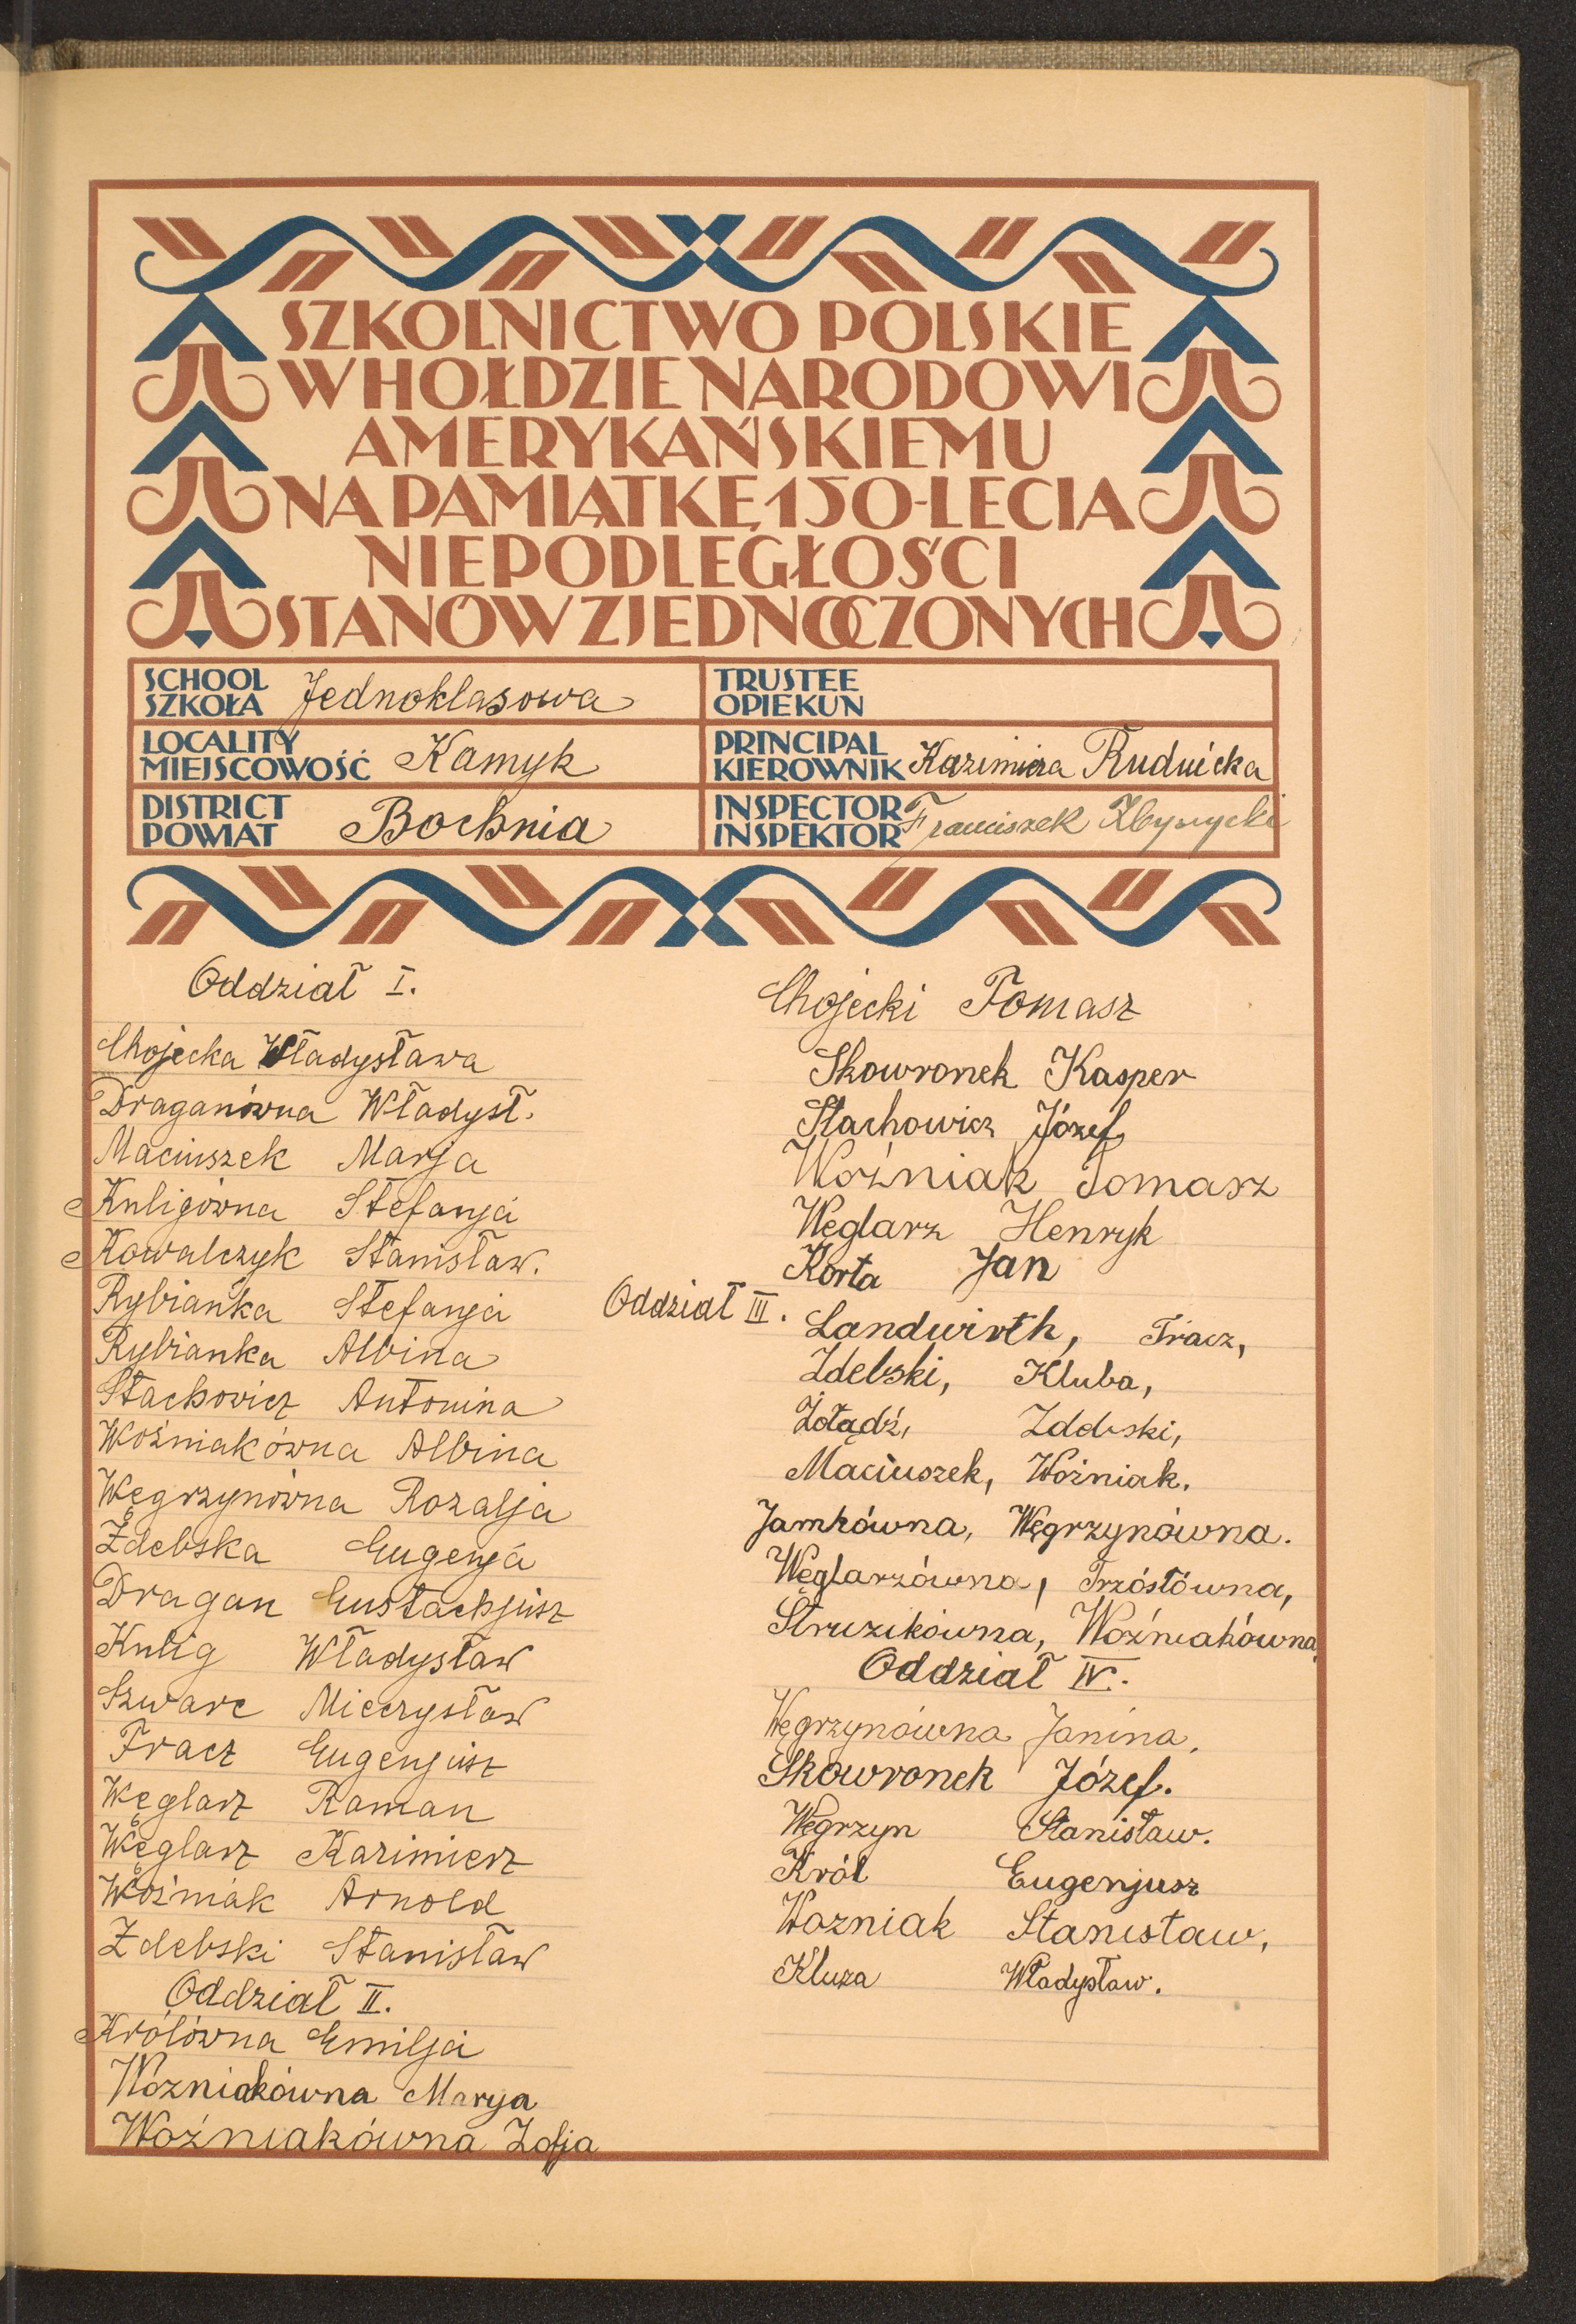 SZKOLNICTWO POLSKIE
W HOŁDZIE NARODOWI
AMERYKAŃSKIEMU
NA PAMIĄTKĘ 150-LECIA
NIEPODLEGŁOŚCI
STANÓW ZJEDNOCZONYCH
SCHOOL
SZKOŁA Jednoklasowa
TRUSTEE
OPIEKUN
LOCALITY
MIEJSCOWOŚĆ Kamyk
PRINCIPAL
KIEROWNIK Kazimiera Rudnicka
DISTRICT
POWIAT Bochnia
INSPECTOR
INSPEKTOR Franciszek
Oddział I.
Chojecka Władysława
Draganówna Władysł.
Maciuszek Marja
Kuligówna Stefanja
Kowalczyk Stanisław.
Rybianka Stefanja
Rybianka Albina
Stachowicz Antonina
Woźniakówna Albina
Węgrzynówna Rozalja
Zdebska Eugenja
Dragan Eustachjusz
Kulig Władysław
Szwarc Mieczysław
Tracz Eugenjusz
Węglarz Roman
Węglarz Kazimierz
Woźniak Arnold
Zdebski Stanisław
Oddział II.
Królówna Emilja
Wozniakówna Marya
Woźniakówna Zofja
Chojecki Tomasz
Skowronek Kasper
Stachowicz Józef
Woźniak Tomasz
Węglarz Henryk
Korta Jan
Oddział III. Landwirth, Tracz,
Zdebski, Kluba,
Żołądź, Zdebski,
Maciuszek, Woźniak.
Jamkówna, Węgrzynówna.
Węglarzówna, Trzóstówna,
Struzikówna, Woźniakówna.
Oddział IV.
Węgrzynówna Janina.
Skowronek Józef.
Węgrzyn Stanisław.
Król Eugenjusz
Wozniak Stanisław,
Kluza Władysław.